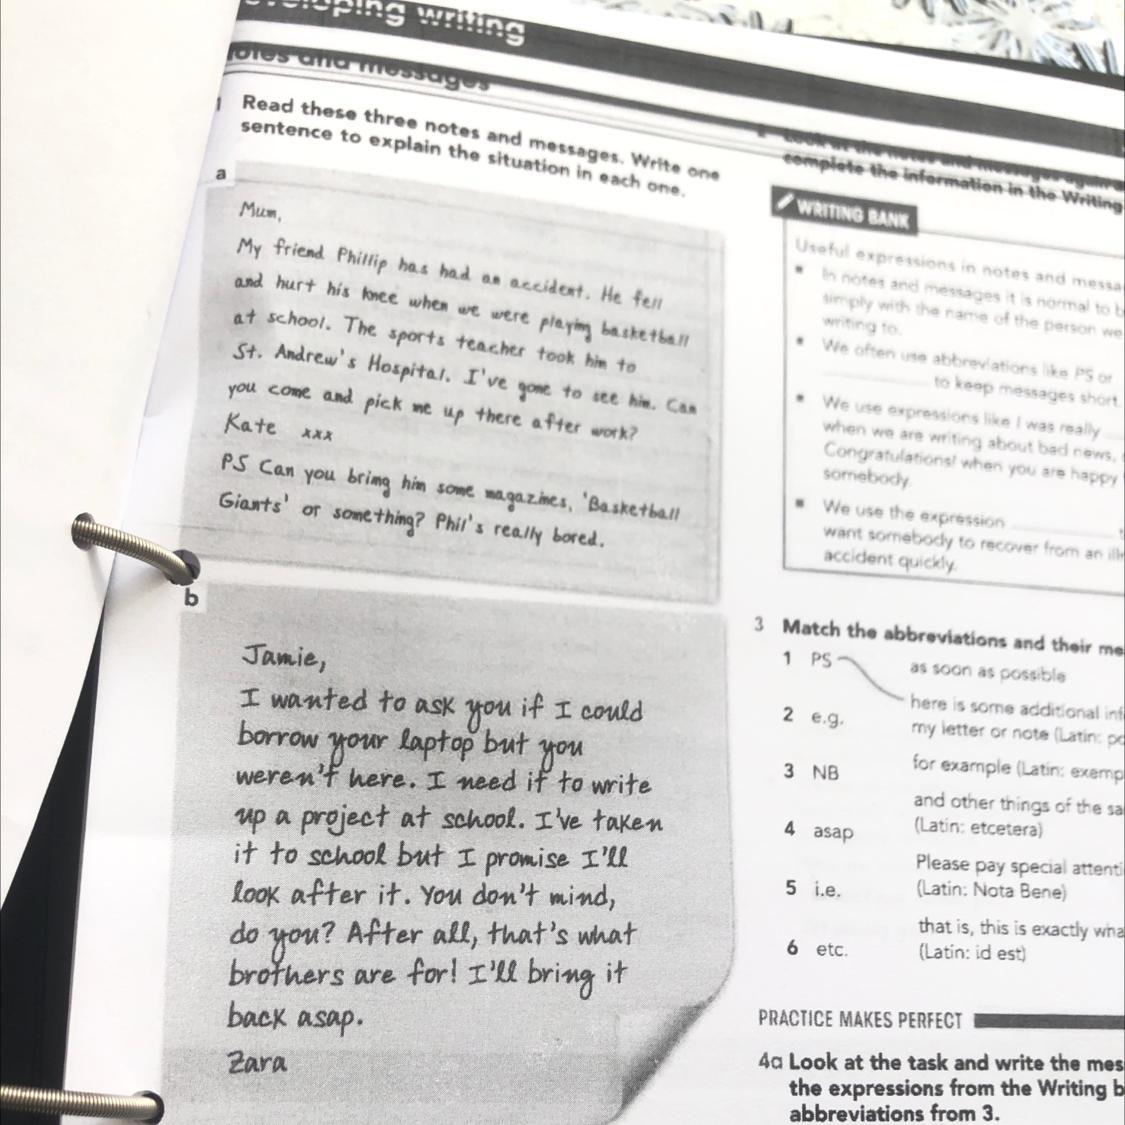 writing
notes and messages
1 Read these three notes and messages. Write one
sentence to explain the situation in each one.
a
Mum,
My friend Phillip has had an accident. He fell
and hurt his knee when we were playing basketball
at school. The sports teacher took him to
St. Andrew's Hospital. I've gone to see him. Can
you come and pick me up there after work?
Kate xxx
PS Can you bring him some magazines, 'Basketball
Giants' or something? Phil's really bored.
b
Jamie,
I wanted to ask you if I could
borrow your laptop but you
weren't here. I need it to write
up a project at school. I've taken
it to school but I promise I'll
look after it. You don't mind,
do you? After all, that's what
brothers are for! I'll bring it
back asap.
Zara
Look at the notes and messages again
complete the information in the Writing
WRITING BANK
Useful expressions in notes and
In notes and messages it is normal to
simply with the name of the person we
writing to.
We often use abbreviations like PS or
to keep messages short.
We use expressions like I was really
when we are writing about bad news,
Congratulations! when you are happy
somebody.
We use the expression
want somebody to recover from an
accident quickly.
3 Match the abbreviations and their
1 PS as soon as possible
here is some additional
my letter or note (Latin:
2 e.g.
for example (Latin:
3 NB
and other things of the
(Latin: etcetera)
4 asap
Please pay special
(Latin: Nota Bene)
5 i.e.
that is, this is exactly
(Latin: id est)
6 etc.
PRACTICE MAKES PERFECT
4a Look at the task and write the
the expressions from the Writing
abbreviations from 3.